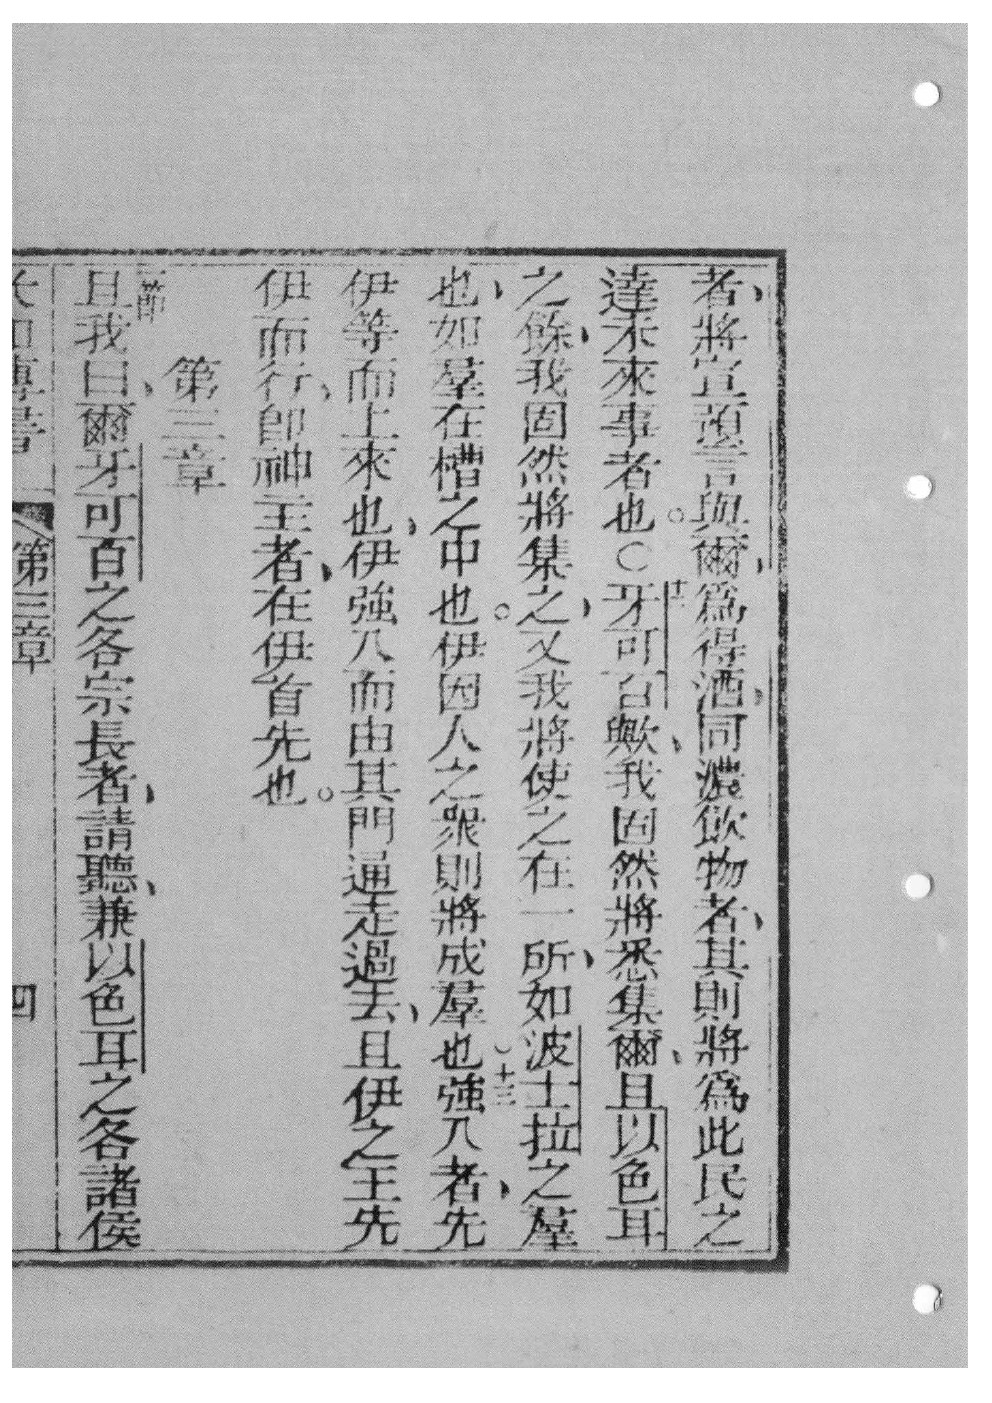 者、將宣預言與爾、為得酒、同濃飲物者、其則將為此民之
達未來事者也。〇十二牙可百歟、我固然將悉集爾、且以色耳
之餘、我固然將集之、又我將使之在一所、如波士拉之羣
也、如羣在槽之中也。伊因人之衆則將成羣也〇十三強入者、先
伊等而上來也、伊強入而由其門通走過去、且伊之王先
伊而行、即神主者、在伊首先也。
第三章
一節且我曰、爾牙可百之各宗長者、請聽、兼以色耳之各諸侯
第三章 四